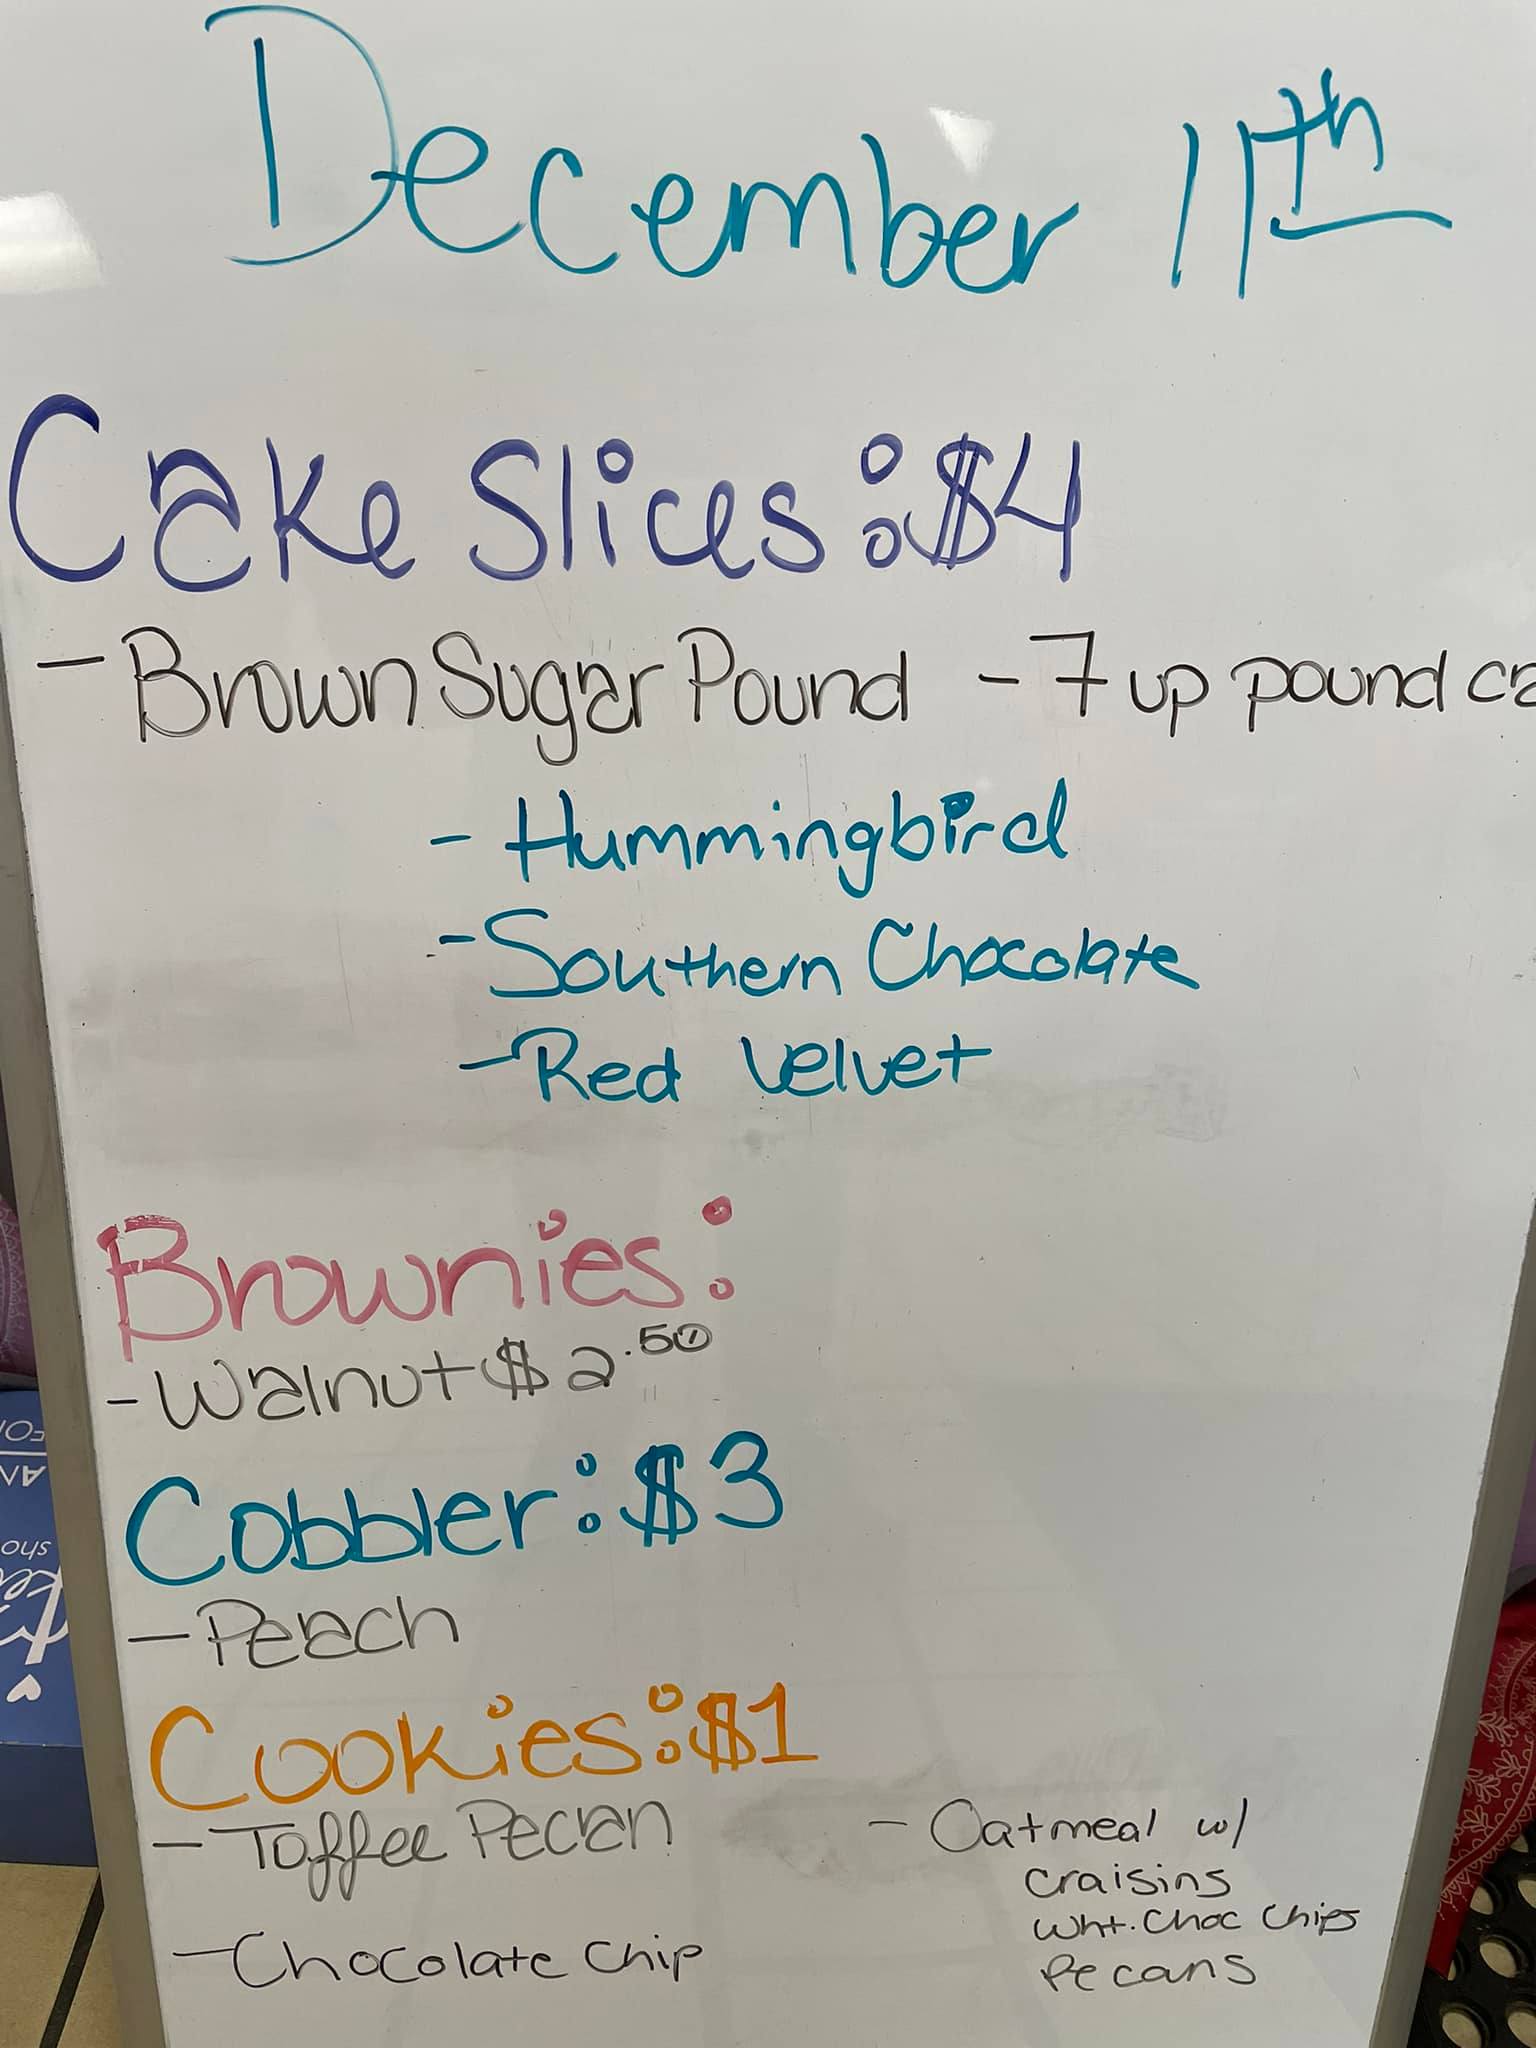 December 11th
Cake Slices: $4
- Brown Sugar Pound - 7 up pound ca
- Hummingbird
- Southern Chocolate
- Red Velvet
Brownies:
- Walnut $2.50
Cobbler: $3
- Peach
Cookies: $1
- Toffee Pecan
- Chocolate Chip
- Oatmeal w/
craisins
Wht. Choc Chips
Pecans